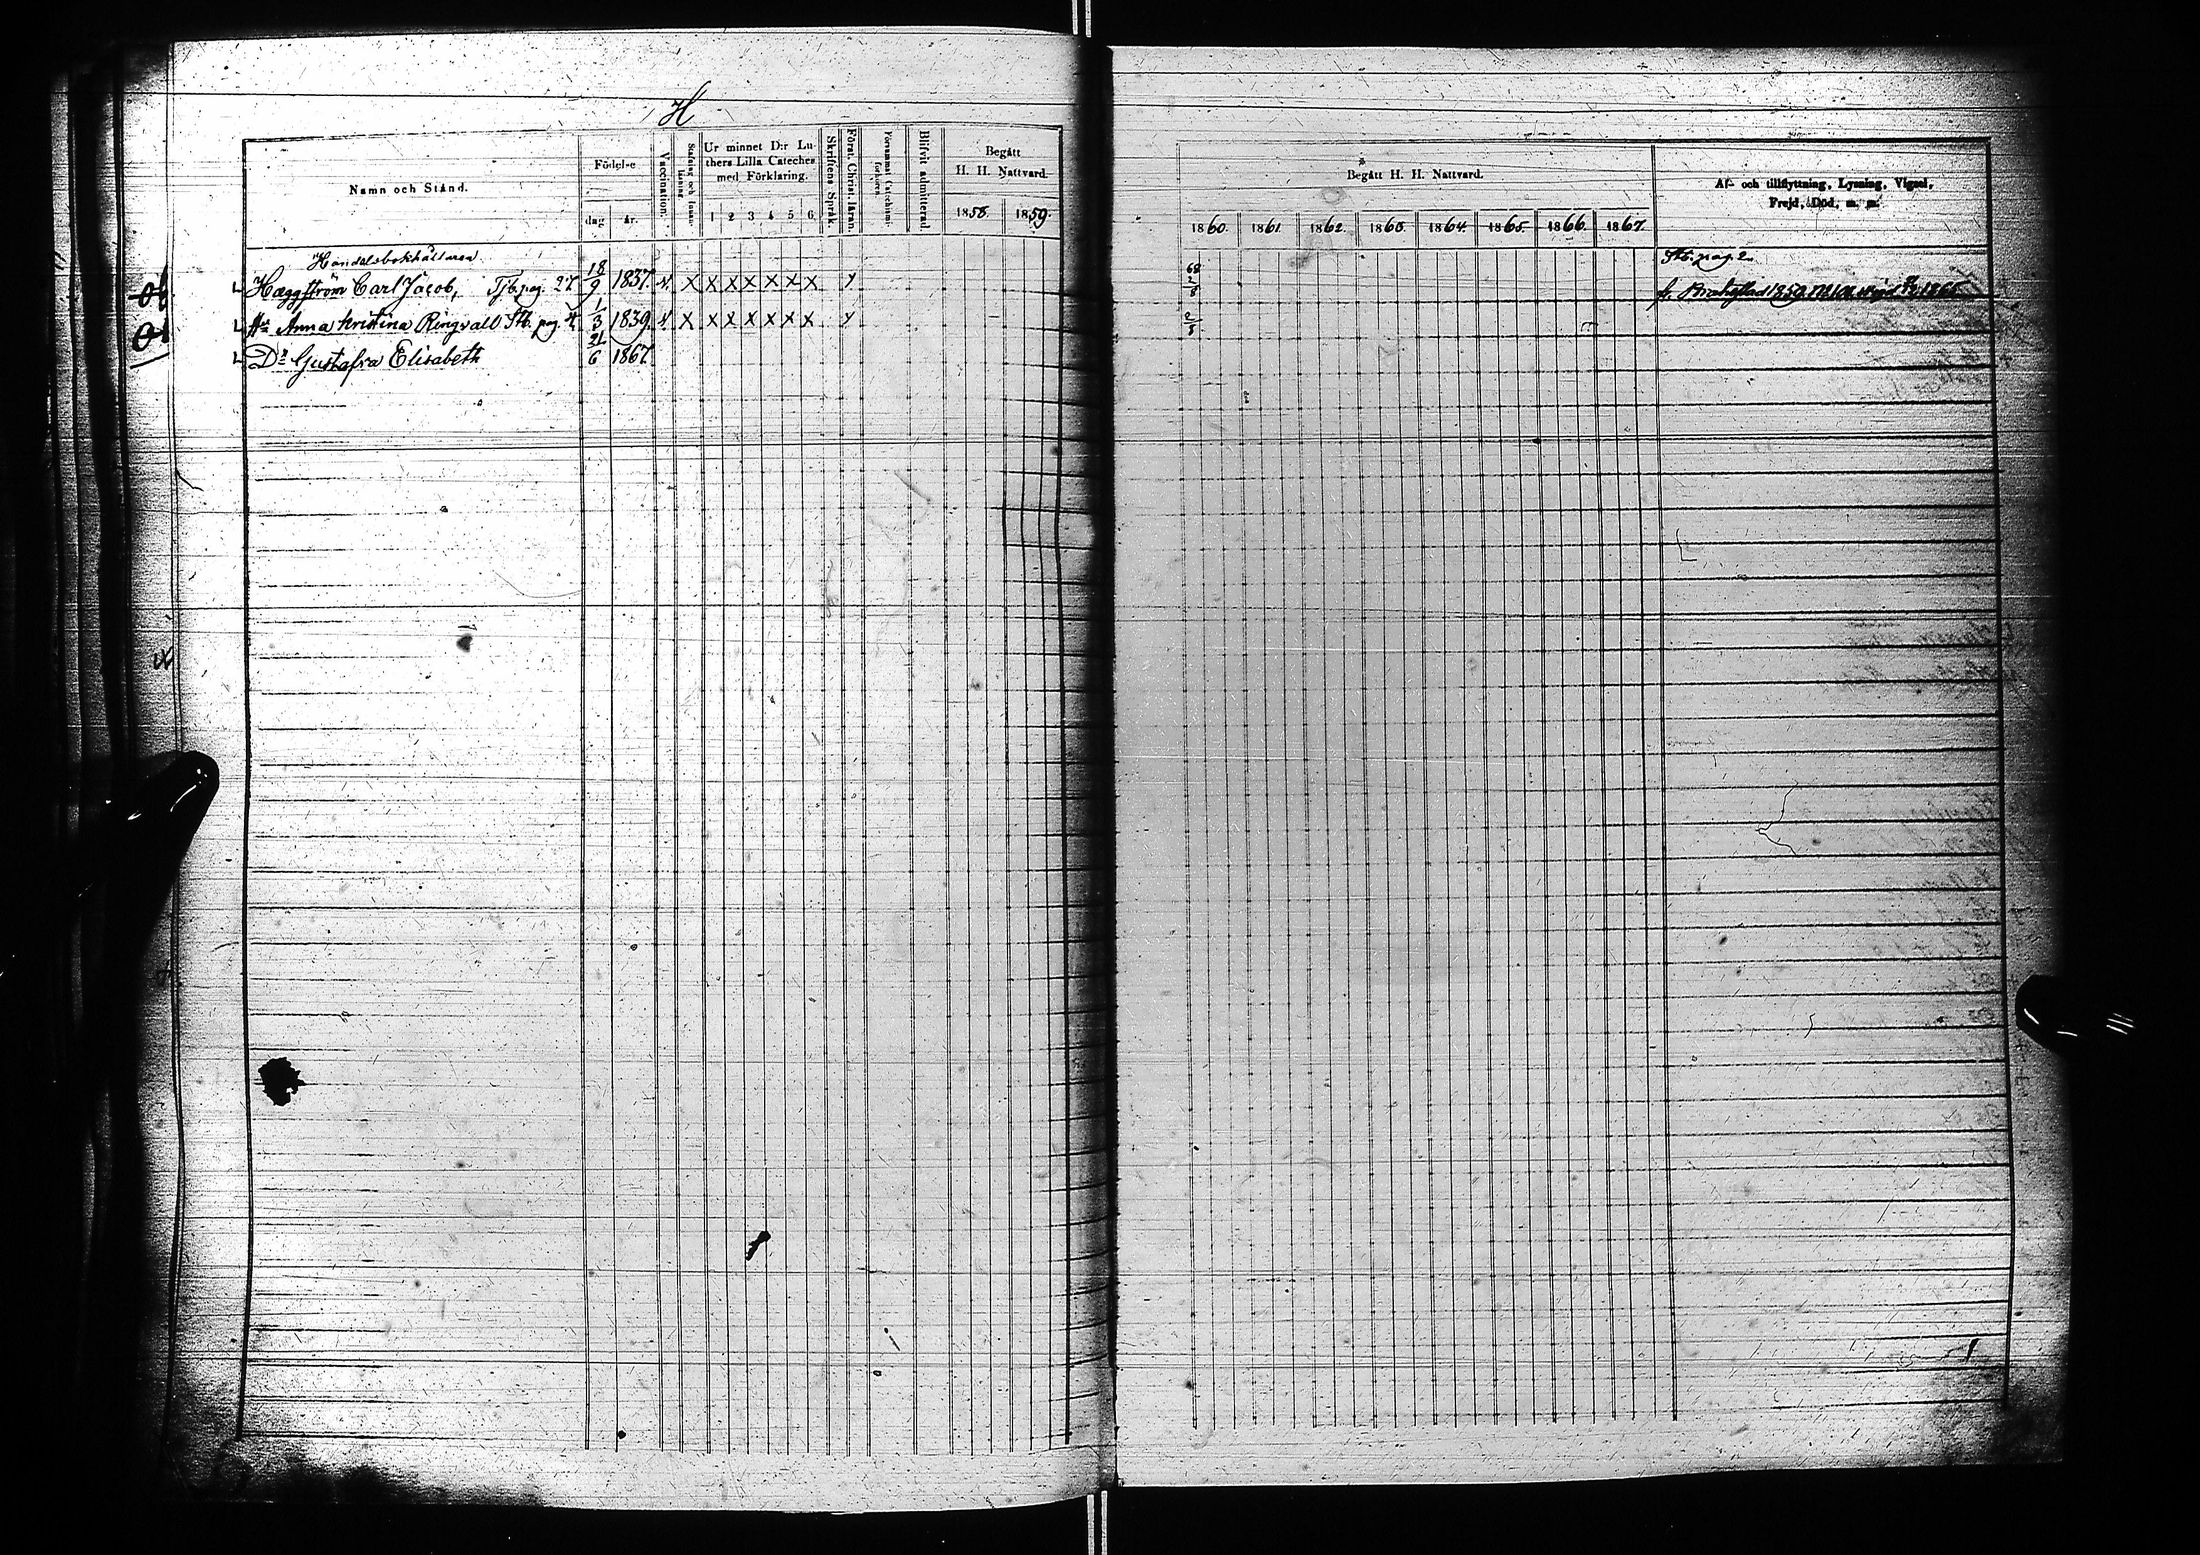 H
Namn och Stånd.
Födelse
dag
år.
Vaccination.
Stafning och Innan-läsning
Ur minnet D:r Lu-
thers Lilla Cateches
med Förklaring.
1 2 3 4 5 6.
Skriftens Språk.
Först. Christ. läran.
Försummat Catechismi-förhören
Blifvit admitterad.
Begått
H. H. Nattvard.
1858.
1859.
Begått H. H. Nattvard.
1860. 1861. 1862. 1863. 1864. 1865. 1866. 1867.
Af- och tillflyttning, Lysning, Vigsel,
Frejd, Död, m. m.
Handelsbokhållaren
Stb. pag. 2
Hæggström Carl Jacob, Tjb. pag. 27 18/9 1837. v. X X X X X X X Y 68 2/8
Hu Anna Kristina Ringvall Stb. pag. 4. 1/3 1839. v. X X X X X X X Y 2/8
Dr Gustafva Elisabeth 21/6 1867.